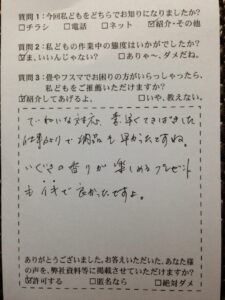 質問1：今回私どもをどちらでお知りになりましたか?
□チラシ　□電話　□ネット　☑紹介・その他
質問2：私どもの作業中の態度はいかがでしたか?
☑ま、いいんじゃない?　□ありゃ～、ダメだね。
質問3：畳やフスマでお困りの方がいらっしゃったら、
私どもをご推薦いただけますか?
☑紹介してあげるよ。　□いや、教えない。
ていねいな対応、
仕事ぶりで納品も早かったですね。
いぐさの香りが楽しめるプレゼント
もステキで良かったですよ。
ありがとうございました。お答えいただいた、あなた様
の声を、弊社資料等に掲載させていただけますか?
☑許可する　□匿名なら　□絶対ダメ